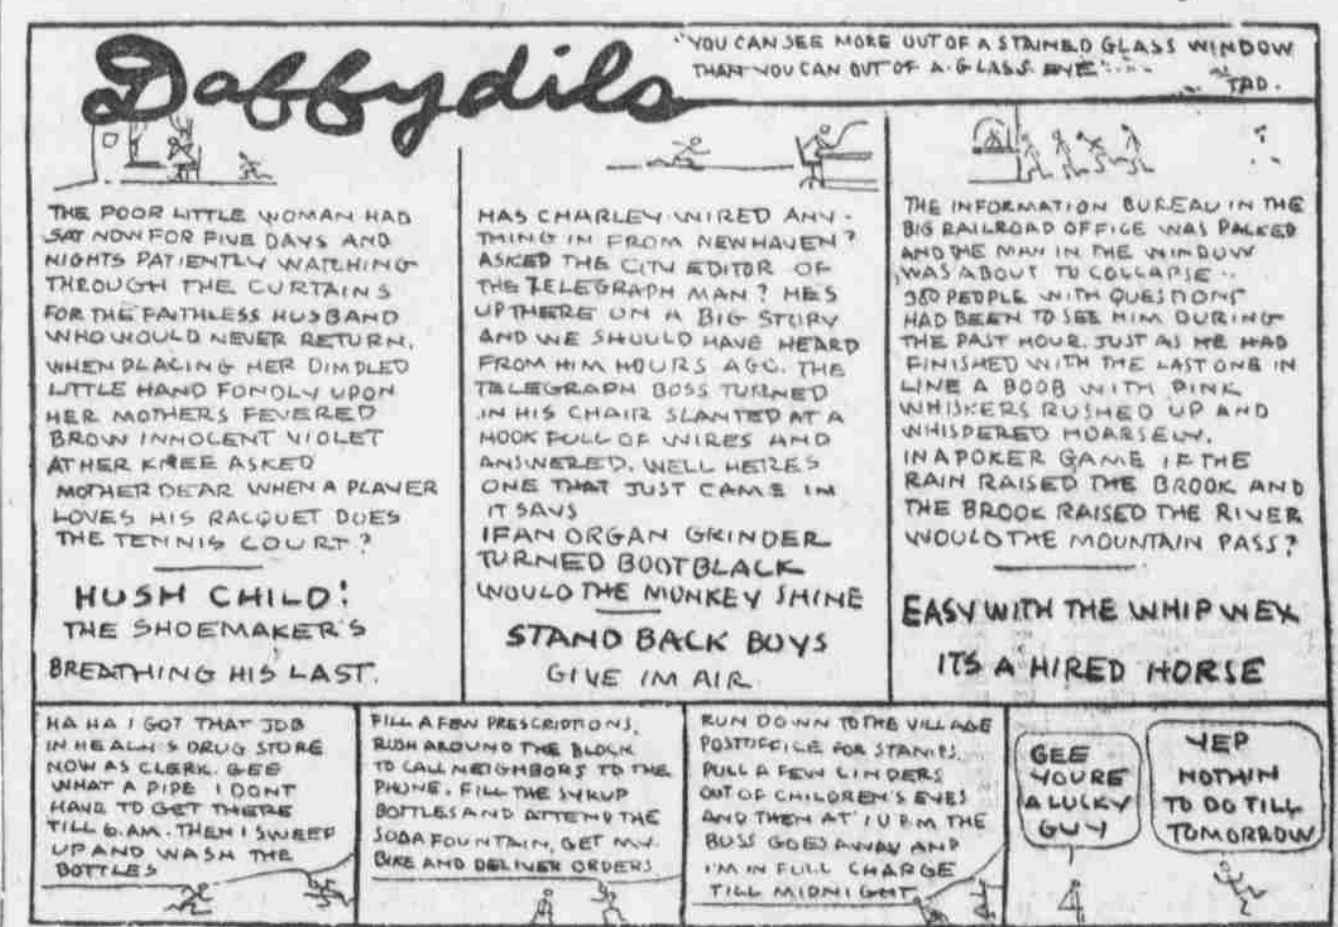 Daffydils
"YOU CAN SEE MORE OUT OF A STAINED GLASS WINDOW
THAN YOU CAN OUT OF A GLASS EYE"....
TAD.
THE POOR LITTLE WOMAN HAD
SAT NOW FOR FIVE DAYS AND
NIGHTS PATIENTLY WATCHING
THROUGH THE CURTAINS
FOR THE FAITHLESS HUSBAND
WHO WOULD NEVER RETURN.
WHEN PLACING HER DIMPLED
LITTLE HAND FONDLY UPON
HER MOTHERS FEVERED
BROW INNOCENT VIOLET
AT HER KNEE ASKED
MOTHER DEAR WHEN A PLAYER
LOVES HIS RACQUET DOES
THE TENNIS COURT?
HUSH CHILD!
THE SHOEMAKER'S
BREATHING HIS LAST.
HAS CHARLEY WIRED ANY-
THING IN FROM NEWHAVEN?
ASKED THE CITY EDITOR OF
THE TELEGRAPH MAN? HES
UP THERE ON A BIG STORY
AND WE SHOULD HAVE HEARD
FROM HIM HOURS AGO. THE
TELEGRAPH BOSS TURNED
IN HIS CHAIR SLANTED AT A
HOOK FULL OF WIRES AND
ANSWERED. WELL HERES
ONE THAT JUST CAME IN
IT SAYS
IF AN ORGAN GRINDER
TURNED BOOTBLACK
WOULD THE MONKEY SHINE
STAND BACK BOYS
GIVE IM AIR
THE INFORMATION BUREAU IN THE
BIG RAILROAD OFFICE WAS PACKED
AND THE MAN IN THE WINDOW
WAS ABOUT TO COLLAPSE..
380 PEOPLE WITH QUESTIONS
HAD BEEN TO SEE HIM DURING
THE PAST HOUR. JUST AS HE HAD
FINISHED WITH THE LAST ONE IN
LINE A BOOB WITH PINK
WHISKERS RUSHED UP AND
WHISPERED HOARSELY.
IN A POKER GAME IF THE
RAIN RAISED THE BROOK AND
THE BROOK RAISED THE RIVER
WOULD THE MOUNTAIN PASS?
EASY WITH THE WHIP WEX
ITS A HIRED HORSE
HA HA I GOT THAT JOB
IN HEALY'S DRUG STORE
NOW AS CLERK. GEE
WHAT A PIPE I DONT
HAVE TO GET THERE
TILL 6. AM. THEN I SWEEP
UP AND WASH THE
BOTTLES
FILL A FEW PRESCRIPTIONS,
RUSH AROUND THE BLOCK
TO CALL NEIGHBORS TO THE
PHONE. FILL THE SYRUP
BOTTLES AND ATTEND THE
SODA FOUNTAIN, GET MY
BIKE AND DELIVER ORDERS
RUN DOWN TO THE VILLAGE
POSTOFFICE FOR STAMPS.
PULL A FEW CINDERS
OUT OF CHILDREN'S EYES
AND THEN AT 10 P.M THE
BOSS GOES AWAY AND
I'M IN FULL CHARGE
TILL MIDNIGHT
GEE
YOURE
A LUCKY
GUY
YEP
NOTHIN
TO DO TILL
TOMORROW